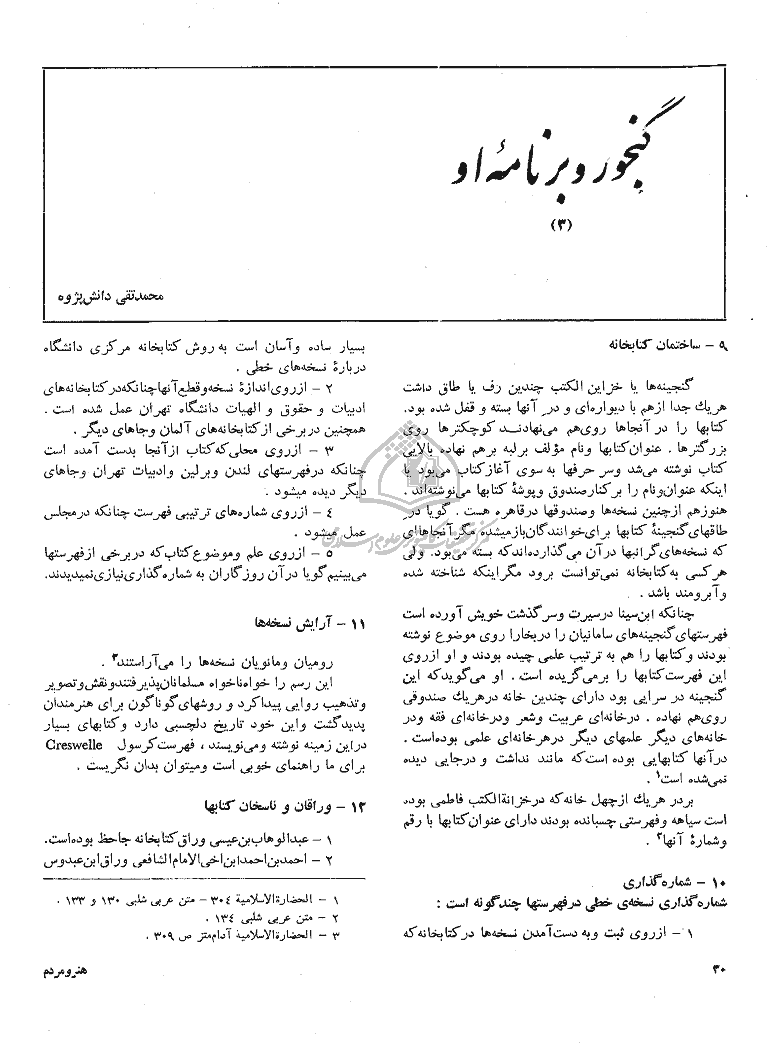 گنجور و برنامهٔ او
(۳)
محمدتقی دانش‌پژوه
۹ – ساختمان کتابخانه
گنجینه‌ها یا خزاین الکتب چندین رف یا طاق داشت
هریك جدا ازهم با دیواره‌ای و در آنها بسته و قفل شده بود.
کتابها را در آنجاها روی‌هم می‌نهادنــد کوچکترها روی
بزرگترها . عنوان‌کتابها ونام مؤلف برلبه برهم نهاده بالایی
کتاب نوشته می‌شد وسر حرفها به سوی آغازکتاب می‌بود یا
اینکه عنوان‌ونام را برکنارصندوق وپوشهٔ کتابها می‌نوشته‌اند .
هنوزهم ازچنین نسخه‌ها وصندوقها درقاهره هست . گویا در
طاقهای‌گنجینهٔ کتابها برای‌خوانندگان‌بازمیشده مگرآنجاهای
که نسخه‌های‌گرانبها درآن می‌گذارده‌اندکه بسته می‌بود. ولی
هرکسی به‌کتابخانه نمی‌توانست برود مگراینکه شناخته شده
وآبرومند باشد .
چنانکه ابن‌سینا درسیرت وسرگذشت خویش آورده است
فهرستهای‌گنجینه‌های سامانیان را دربخارا روی موضوع نوشته
بودند وکتابها را هم به ترتیب علمی چیده بودند و او ازروی
این فهرست‌کتابها را برمی‌گزیده است . او می‌گویدکه این
گنجینه در سرایی بود دارای چندین خانه در‌هریك صندوقی
روی‌هم نهاده . درخانه‌ای عربیت وشعر ودرخانه‌ای فقه ودر
خانه‌های دیگر علمهای دیگر درهرخانه‌ای علمی بوده‌است .
درآنها کتابهایی بوده است‌که مانند نداشت و درجایی دیده
نمی‌شده است۱ .
بردر هریك ازچهل خانه‌که درخزانةالکتب فاطمی بوده
است سیاهه وفهرستی چسبانده بودند دارای عنوان‌کتابها با رقم
وشمارهٔ آنها۲ .
۱۰ – شماره‌گذاری
شماره‌گذاری نسخه‌ی خطی درفهرستها چندگونه است :
۱ – ازروی ثبت وبه دست‌آمدن نسخه‌ها درکتابخانه‌که
بسیار ساده وآسان است به‌روش کتابخانه مرکزی دانشگاه
دربارهٔ نسخه‌های خطی .
۲ – ازروی‌اندازهٔ نسخه‌وقطع‌آنهاچنانکه‌درکتابخانه‌های
ادبیات و حقوق و الهیات دانشگاه تهران عمل شده است .
همچنین دربرخی ازکتابخانه‌های آلمان وجاهای دیگر .
۳ – ازروی محلی‌که‌کتاب ازآنجا بدست آمده است
چنانکه درفهرستهای لندن وبرلین وادبیات تهران وجاهای
دیگر دیده میشود .
٤ – ازروی شماره‌های ترتیبی فهرست چنانکه درمجلس
عمل میشود .
٥ – ازروی علم وموضوع‌کتاب‌که دربرخی ازفهرستها
می‌بینیم‌گویا درآن روزگاران به شماره‌گذاری‌نیازی‌نمیدیدند.
۱۱ – آرایش نسخه‌ها
رومیان ومانویان نسخه‌ها را می‌آراستند۳ .
این رسم را خواه‌ناخواه مسلمانان‌پذیرفتندونقش‌وتصویر
وتذهیب روایی پیداکرد و روشهای‌گوناگون برای هنرمندان
پدیدگشت واین خود تاریخ دلچسبی دارد وکتابهای بسیار
دراین زمینه نوشته ومی‌نویسند ، فهرست‌کرسول Creswelle
برای ما راهنمای خوبی است ومیتوان بدان نگریست .
۱۲ – وراقان و ناسخان کتابها
۱ – عبدالوهاب‌بن‌عیسی وراق‌کتابخانه جاحظ بوده‌است.
۲ – احمدبن‌احمدابن‌اخی‌الامام‌الشافعی وراق‌ابن‌عبدوس
۱ – الحضارةالاسلامیة ۳۰٤ – متن عربی شلبی ۱۳۰ و ۱۳۳ .
۲ – متن عربی شلبی ۱۳٤ .
۳ – الحضارةالاسلامیة آدام‌متز ص ۳۰۹ .
۳۰
هنرومردم